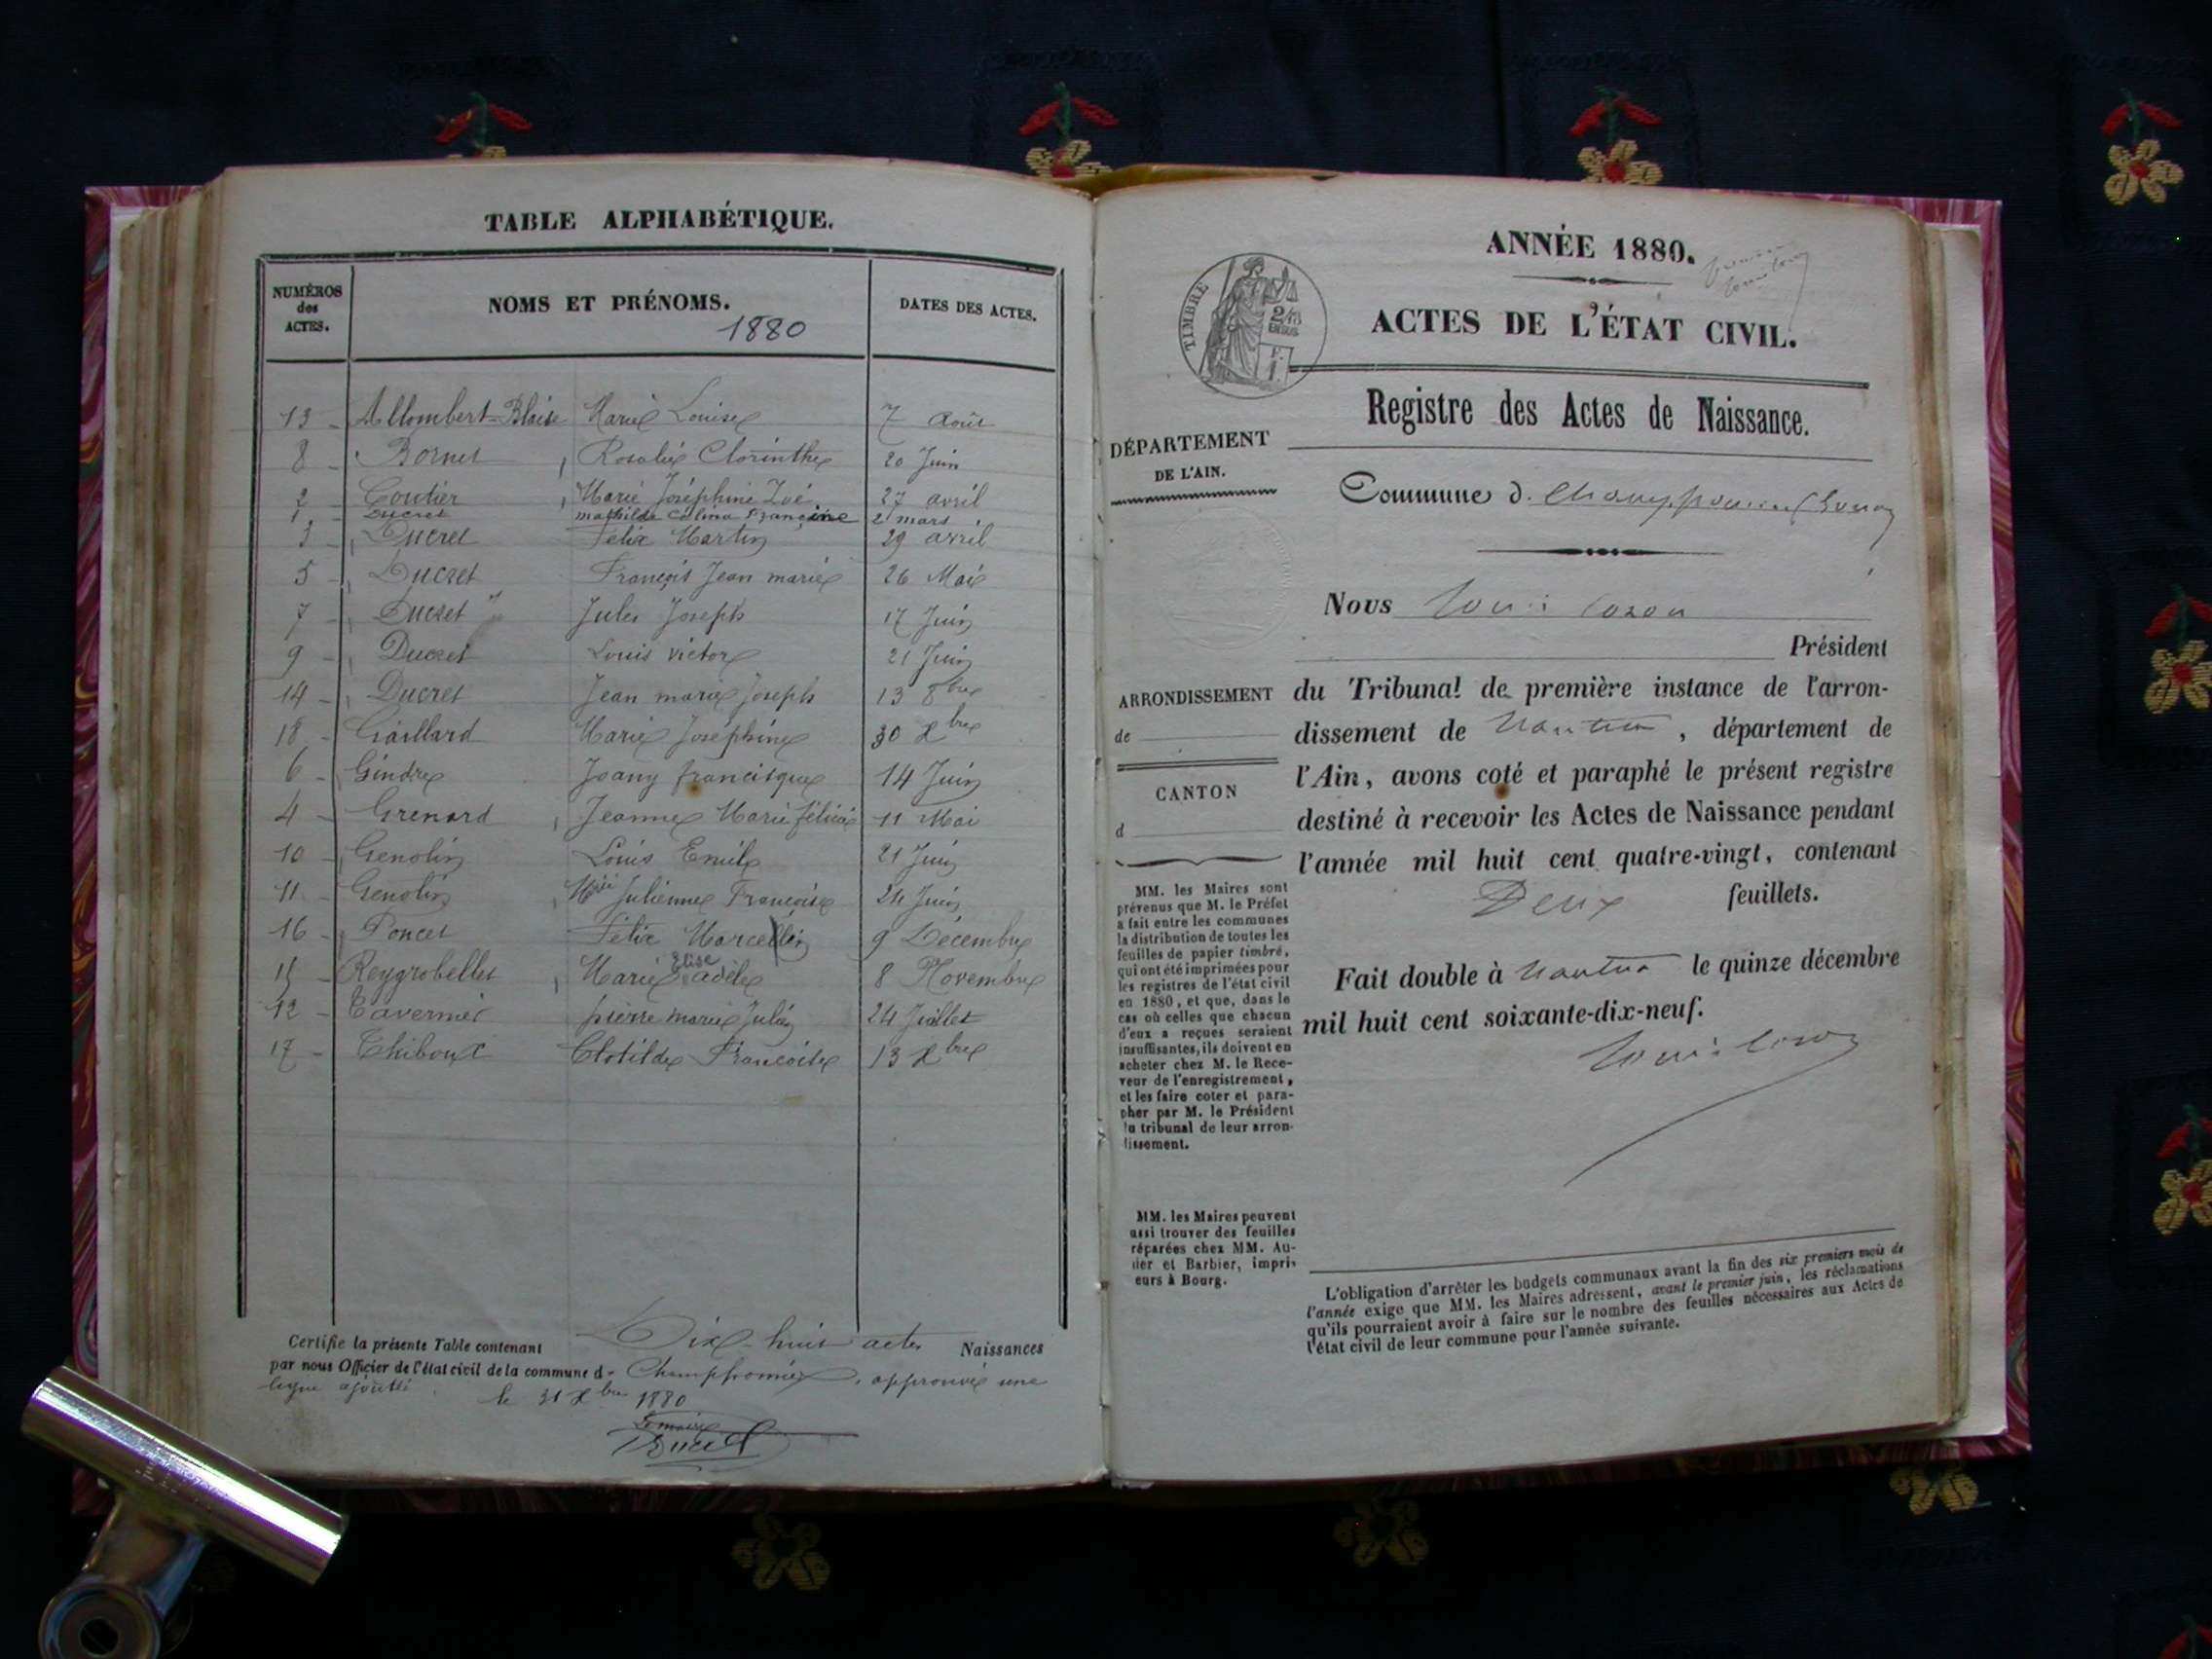 TABLE ALPHABÉTIQUE.
NUMÉROS des ACTES.
NOMS ET PRÉNOMS.
1880
DATES DES ACTES.
13 Allombert-Blaise Marie Louise 7 Août
8 Bornet Rosalie Clorinthe 20 Juin
2 Coutier Marie Joséphine Zoé 27 avril
1 Ducret mathilde Célina Françoine 21 mars
3 Ducret Félix Martin 29 avril
5 Ducret François Jean marie 26 Mai
7 Ducret Jules Joseph 17 Juin
9 Ducret Louis victor 21 Juin
14 Ducret Jean marie Joseph 13 8bre
18 Gaillard Marie Joséphine 30 Xbre
6 Gindre Joany francisque 14 Juin
4 Grenard Jeanne Marie félicie 11 Mai
10 Genolin Louis Emile 21 Juin
11 Genolin Mrie Julienne Françoise 24 Juin
16 Poncet Félix Marcellin 9 Décembre
15 Reygrobellet Marie Elise adèle 8 Novembre
12 Tavernier pierre marie Julien 24 Juillet
17 Thiboux Clotilde Françoise 13 Xbre
Certifie la présente Table contenant Dix-huit actes Naissances
par nous Officier de l'état civil de la commune de Champfromier, approuvé une
ligne ajoutée le 31 Xbre 1880
Le maire
Ducret
ANNÉE 1880.
TIMBRE
ACTES DE L'ÉTAT CIVIL.
Registre des Actes de Naissance.
DÉPARTEMENT
DE L'AIN.
Commune d
Nous
Président
ARRONDISSEMENT
de
CANTON
d
du Tribunal de première instance de l'arron-
dissement de Nantua, département de
l'Ain, avons coté et paraphé le présent registre
destiné à recevoir les Actes de Naissance pendant
l'année mil huit cent quatre-vingt, contenant
Deux feuillets.
Fait double à Nantua le quinze décembre
mil huit cent soixante-dix-neuf.
MM. les Maires sont
prévenus que M. le Préfet
a fait entre les communes
la distribution de toutes les
feuilles de papier timbré,
qui ont été imprimées pour
les registres de l'état civil
en 1880, et que, dans le
cas où celles que chacun
d'eux a reçues seraient
insuffisantes, ils doivent en
acheter chez M. le Rece-
veur de l'enregistrement,
et les faire coter et para-
pher par M. le Président
du tribunal de leur arron-
dissement.
MM. les Maires peuvent
ussi trouver des feuilles
réparées chez MM. Au-
ier et Barbier, impri-
eurs à Bourg.
L'obligation d'arrêter les budgets communaux avant la fin des six premiers mois de
l'année exige que MM. les Maires adressent, avant le premier juin, les réclamations
qu'ils pourraient avoir à faire sur le nombre des feuilles nécessaires aux Actes de
l'état civil de leur commune pour l'année suivante.